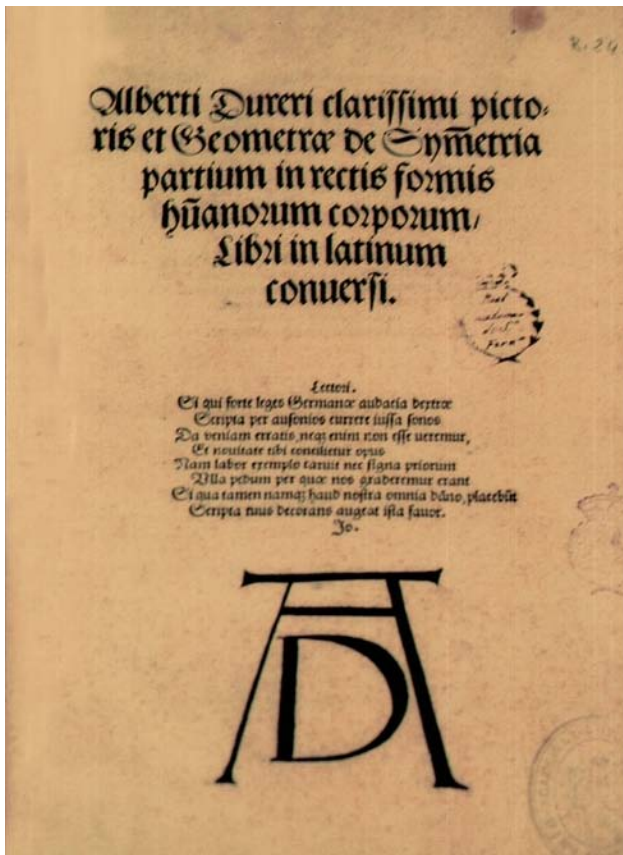 Alberti Dureri clarissimi picto-
ris et Geometræ de Sym̄etria
partium in rectis formis
hūanorum corporum/
Libri in latinum
conuersi.
Lectori.
Si qui forte leges Germanæ audacia dextræ
Scripta per ausonios currere iussa sonos
Da veniam erratis, neqꝫ enim non esse ueremur,
Et nouitate tibi concilietur opus
Nam labor exemplo caruit nec signa priorum
Vlla pedum per quæ nos graderemur erant
Si qua tamen namqꝫ haud nostra omnia dāno, placebūt
Scripta tuus decorans augeat ista fauor.
Jo.
AD